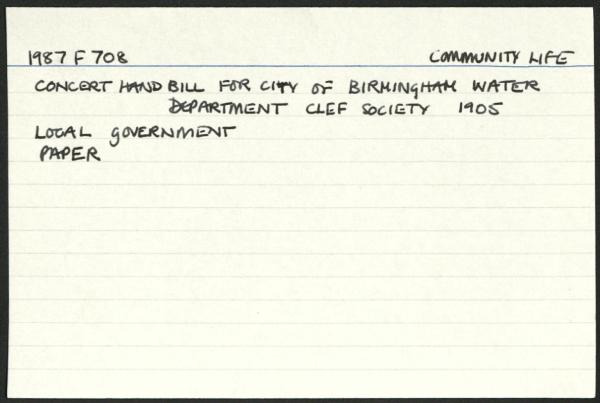 1987 F 708 COMMUNITY LIFE
CONCERT HAND BILL FOR CITY OF BIRMINGHAM WATER
DEPARTMENT CLEF SOCIETY 1905
LOCAL GOVERNMENT
PAPER